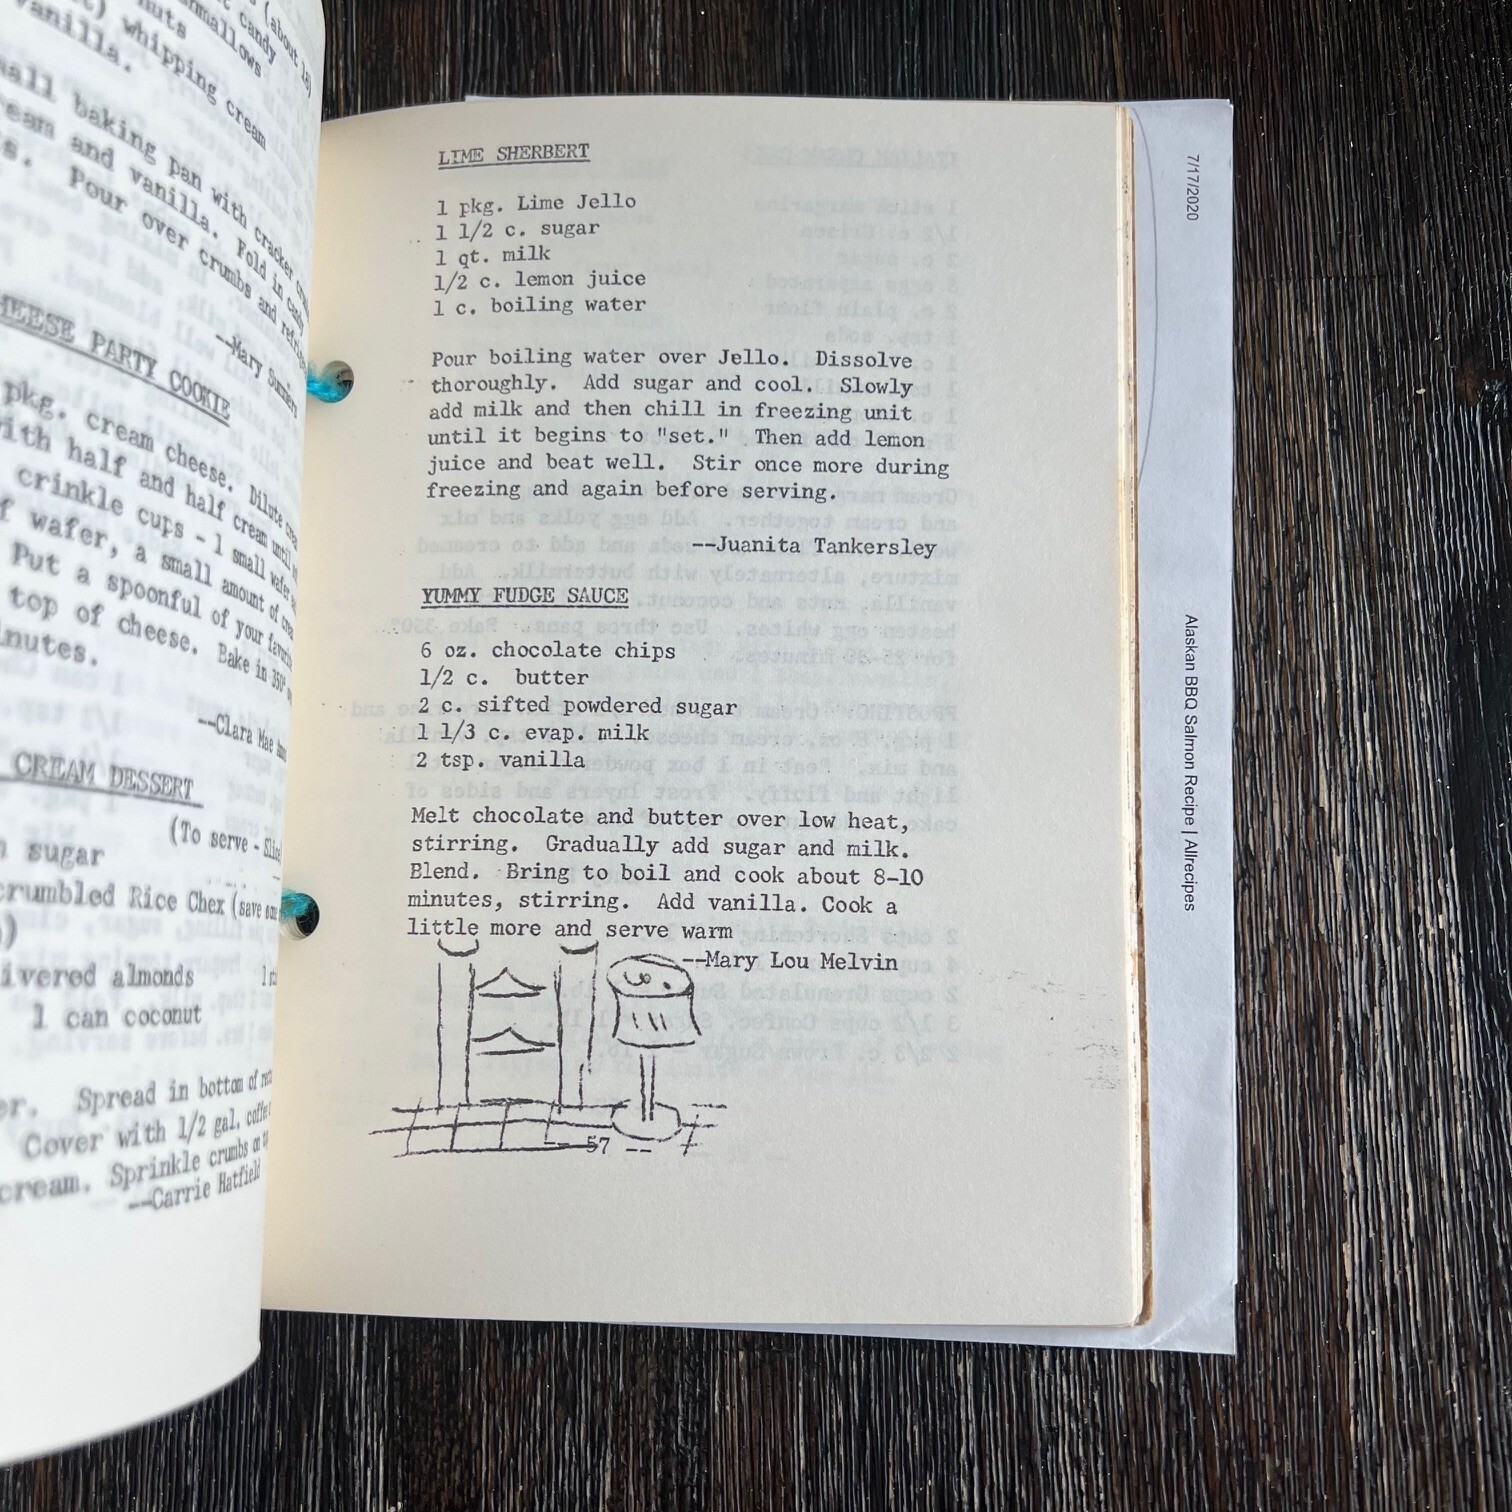 (about 18)
candy
nuts
mallows
whipping cream
vanilla.
small baking pan with cracker
cream and vanilla. Fold in candy
Pour over crumbs and
--Mary Summers
CHEESE PARTY COOKIE
pkg. cream cheese. Dilute
with half and half cream until
crinkle cups - 1 small wafer
of wafer, a small amount of
Put a spoonful of your
top of cheese. Bake in 350°
minutes.
--Clara Mae
CREAM DESSERT
(To serve -
sugar
crumbled Rice Chex (save some
slivered almonds
1 can coconut
Spread in bottom of
Cover with 1/2 gal.
cream. Sprinkle crumbs on
--Carrie Hatfield
LIME SHERBERT
1 pkg. Lime Jello
1 1/2 c. sugar
1 qt. milk
1/2 c. lemon juice
1 c. boiling water
Pour boiling water over Jello. Dissolve
thoroughly. Add sugar and cool. Slowly
add milk and then chill in freezing unit
until it begins to "set." Then add lemon
juice and beat well. Stir once more during
freezing and again before serving.
--Juanita Tankersley
YUMMY FUDGE SAUCE
6 oz. chocolate chips
1/2 c. butter
2 c. sifted powdered sugar
1 1/3 c. evap. milk
2 tsp. vanilla
Melt chocolate and butter over low heat,
stirring. Gradually add sugar and milk.
Blend. Bring to boil and cook about 8-10
minutes, stirring. Add vanilla. Cook a
little more and serve warm
--Mary Lou Melvin
-- 57 --
7/17/2020
Alaskan BBQ Salmon Recipe | Allrecipes